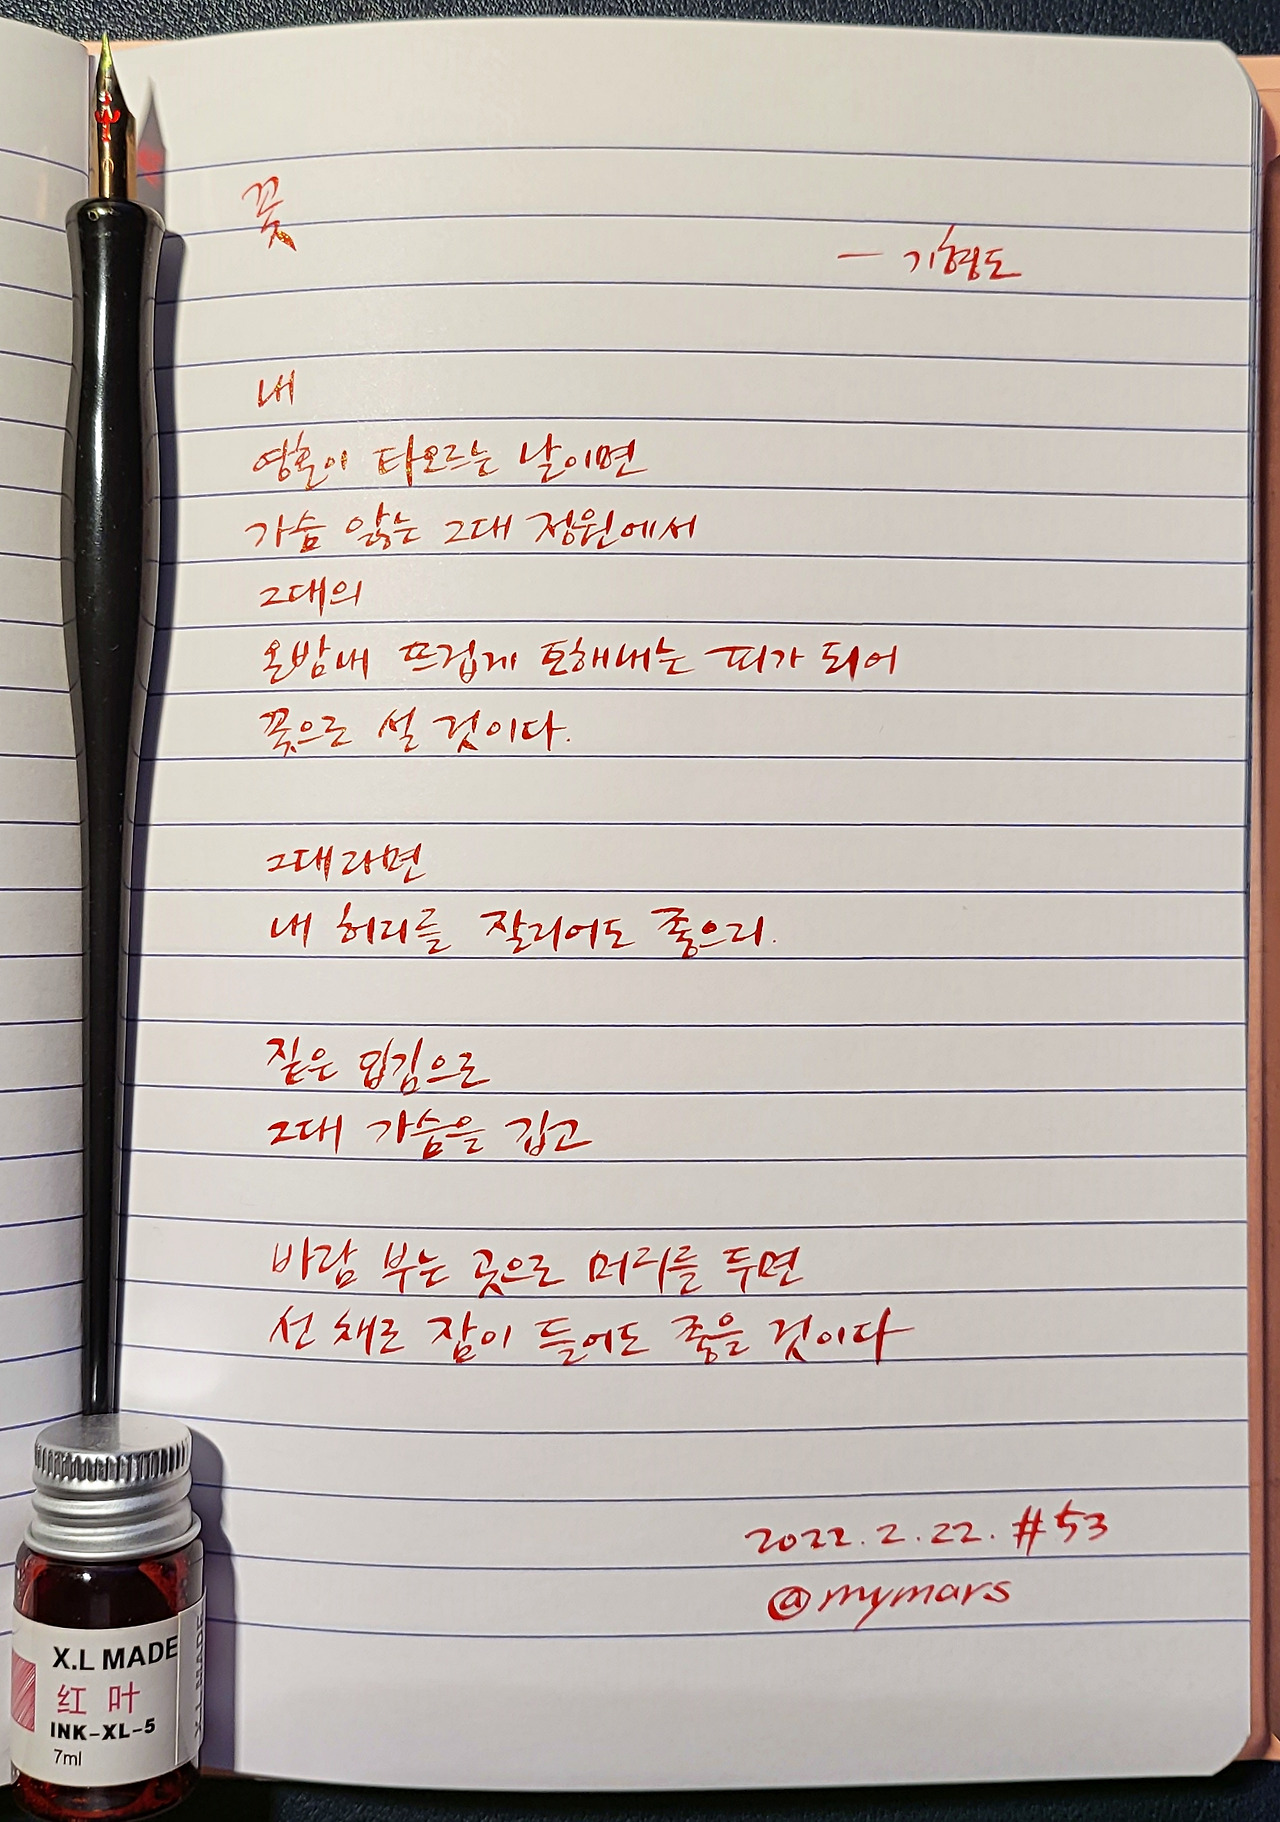 꽃
- 기형도
내
영혼이 타오르는 날이면
가슴 앓는 그대 정원에서
그대의
온밤내 뜨겁게 토해내는 피가 되어
꽃으로 설 것이다.
그대라면
내 허리를 잘리어도 좋으리.
짙은 입김으로
그대 가슴을 깁고
바람 부는 곳으로 머리를 두면
선 채로 잠이 들어도 좋을 것이다
2022.2.22. #53
@mymars
X.L MADE
红叶
INK-XL-5
7ml
X.L MADE